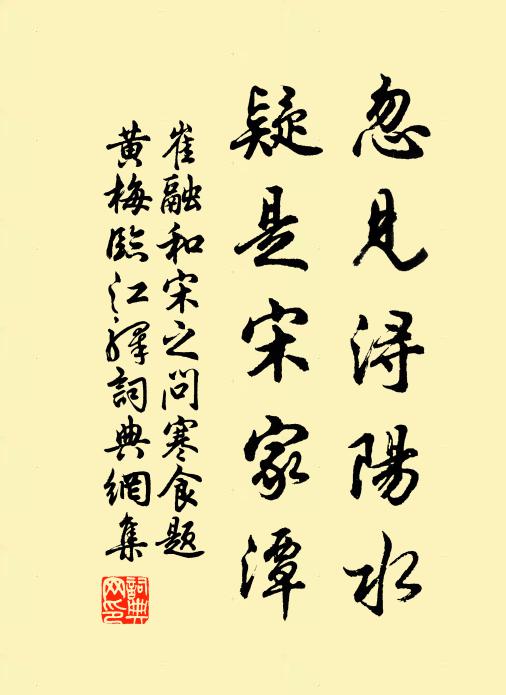 忽見潯陽水
疑是宋家潭
崔融和宋之問寒食題
黃梅臨江驛詞典網集
詞典
网印